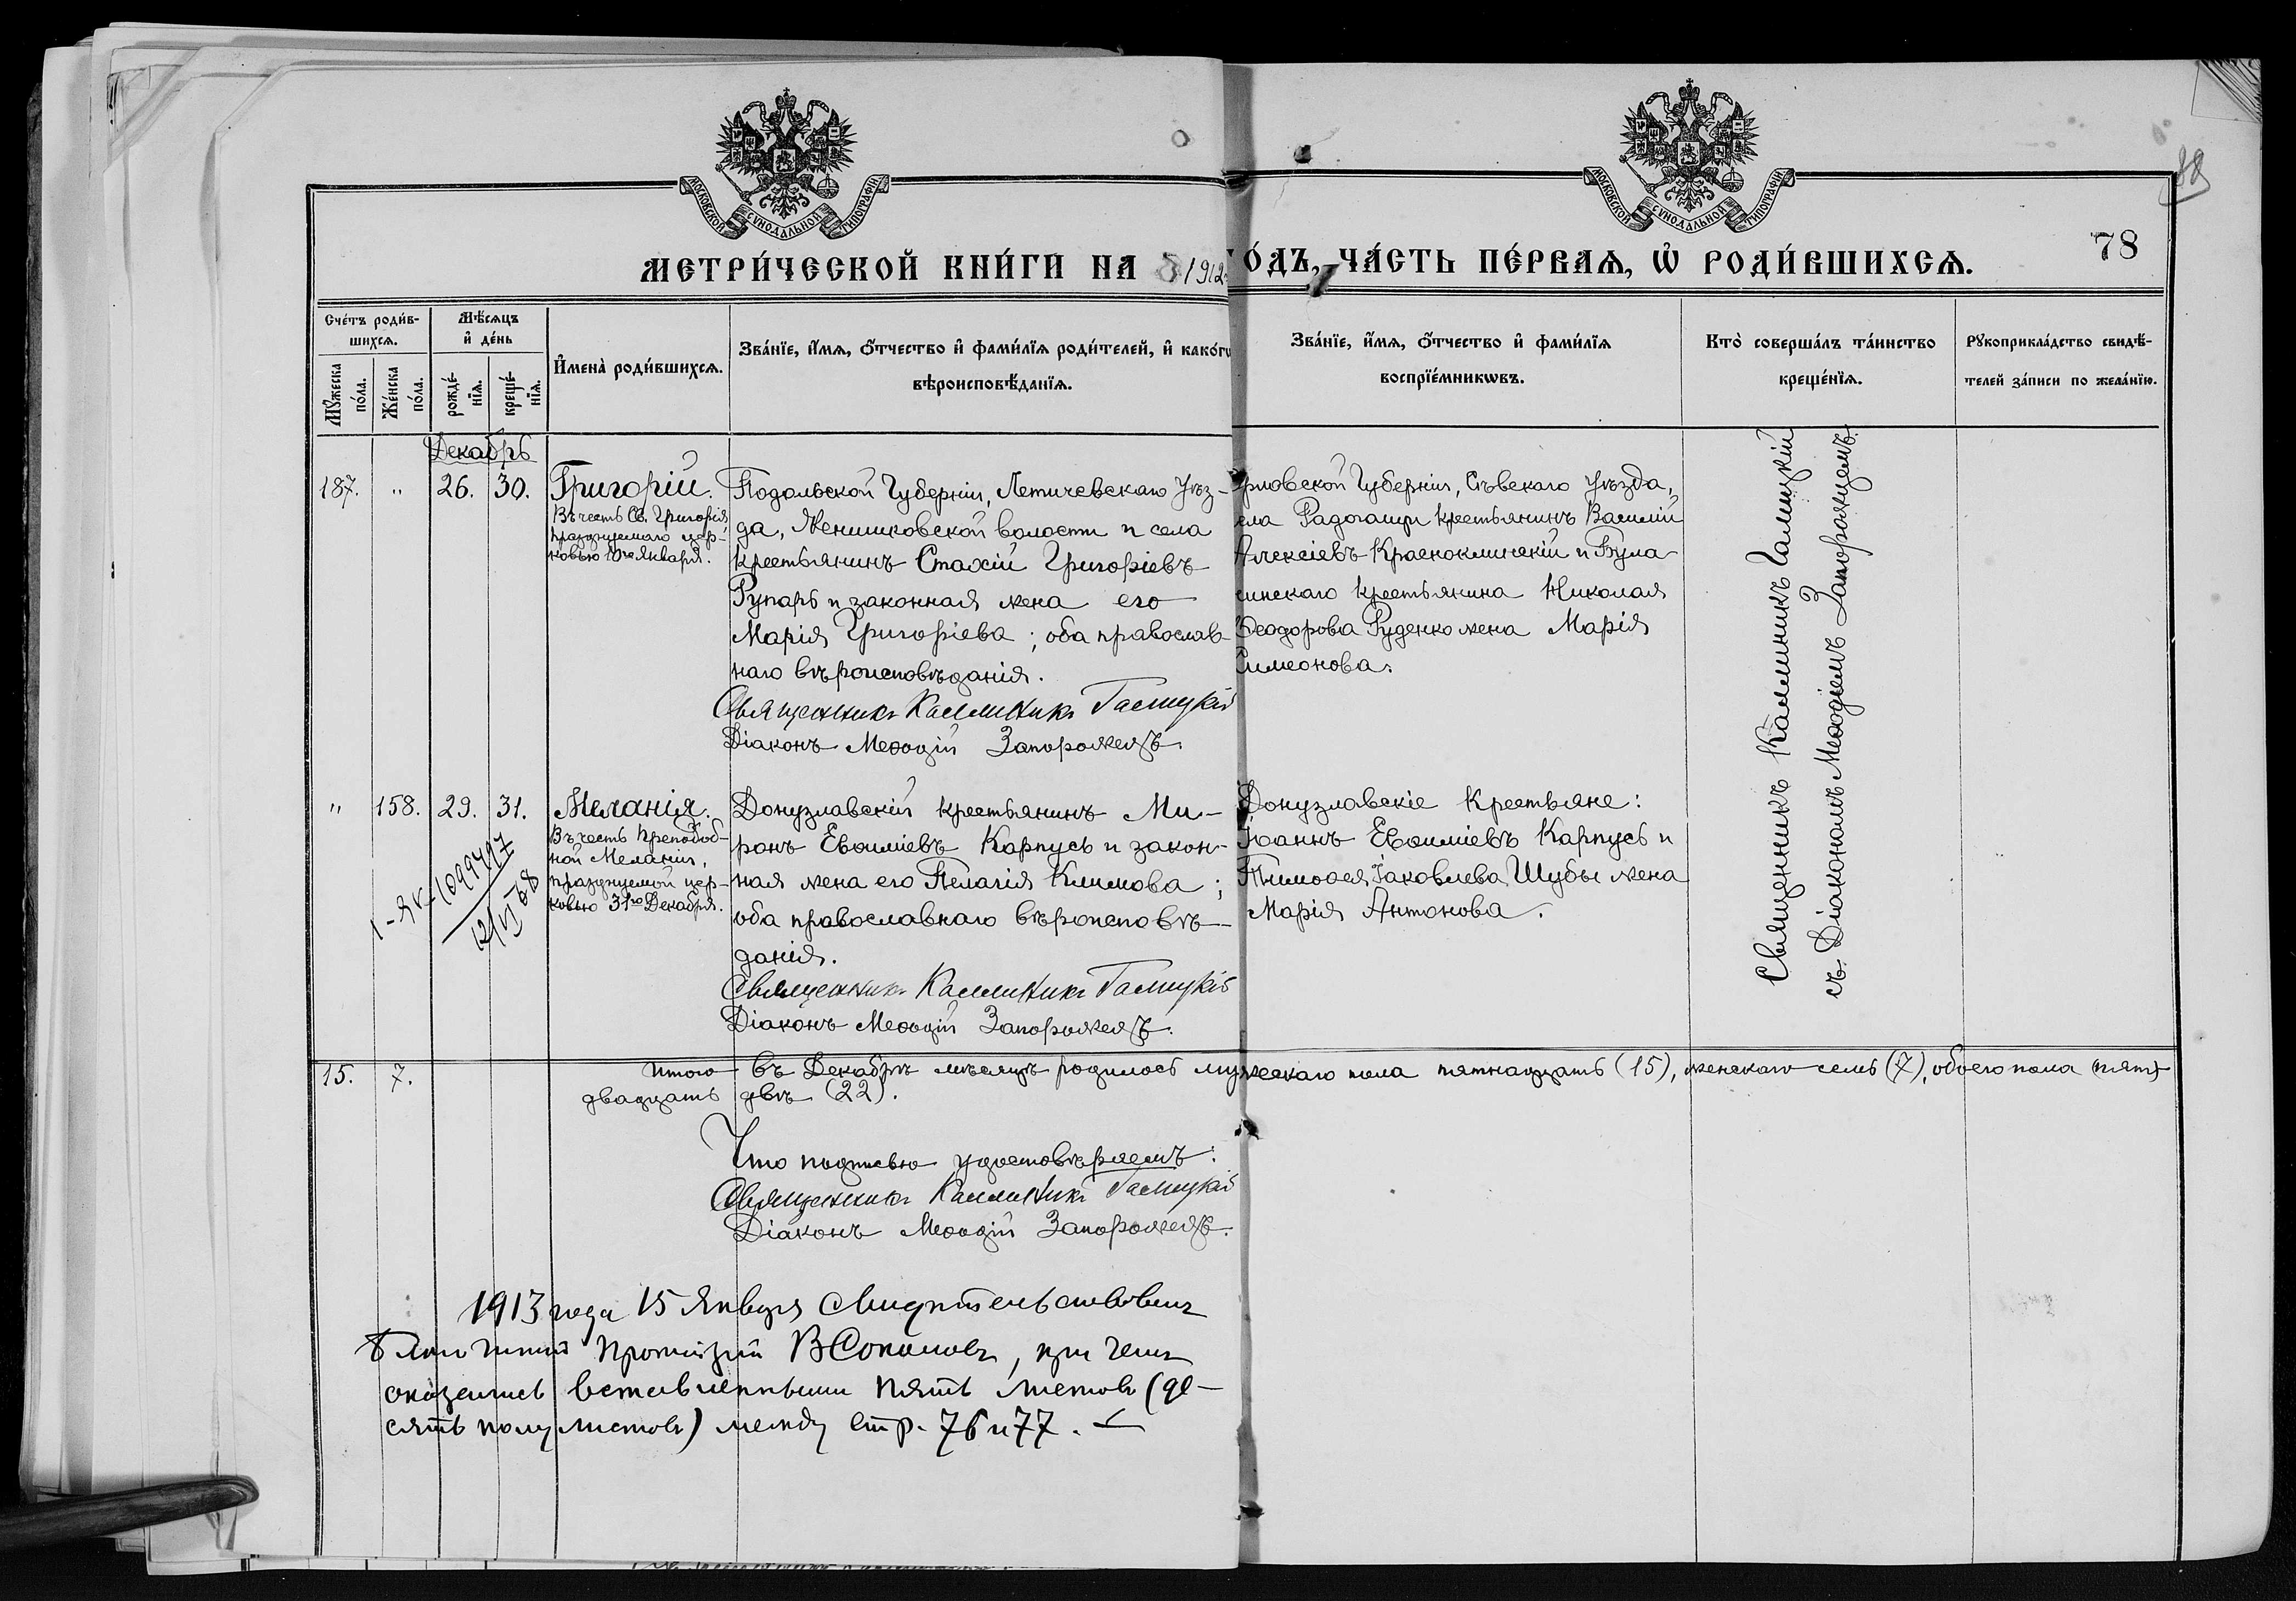 МОСКОВСКОЙ СѴНОДАЛЬНОЙ ТИПОГРАФІИ
МОСКОВСКОЙ СѴНОДАЛЬНОЙ ТИПОГРАФІИ
МЕТРИ́ЧЕСКОЙ КНИ́ГИ НА 1912 ГО́ДЪ, ЧА́СТЬ ПЕ́РВАѦ, Ѽ РОДИ́ВШИХСѦ.
78
Сче́тъ роди́в-
шихсѧ.
Мѣ́сѧцъ
и҆ де́нь
Мꙋ́жеска
по́ла.
Же́нска
по́ла.
рожде́-
нїѧ.
креще́-
нїѧ.
И҆мена̀ роди́вшихсѧ.
Зва́нїе, и҆́мѧ, ѻ҆́тчество и҆ фами́лїѧ роди́телей, и҆ како́гѡ
вѣроисповѣ́данїѧ.
Зва́нїе, и҆́мѧ, ѻ҆́тчество и҆ фами́лїѧ
воспрїе́мникѡвъ.
Кто̀ соверша́лъ та́инство
креще́нїѧ.
Рꙋкоприкла́дство свидѣ́-
телей за́писи по жела́нїю.
Декабрь
187. " 26. 30. Григорій.
Въ честь Св. Григорія,
празднуемаго цер-
ковью 10го Января.
Подольской Губерніи, Летичевскаго Уѣз-
да, Женишковской волости и села
крестьянинъ Стахій Григоріевъ
Рупарь и законная жена его
Марія Григоріева; оба православ-
наго вѣроисповѣданія.
Священникъ Каллиникъ Галицкій
Діаконъ Меѳодій Запорожецъ.
Орловской Губерніи, Сѣвскаго Уѣзда,
села Радогощи крестьянинъ Василій
Алексіевъ Красноклинскій и Була
синскаго крестьянина Николая
Ѳеодорова Руденко жена Марія
Симеонова.
Священникъ Каллиникъ Галицкій
съ Діакономъ Меѳодіемъ Запорожцемъ.
" 158. 29. 31. Меланія.
Въ честь Преподоб-
ной Меланіи,
празднуемой цер-
ковью 31го Декабря.
Донузлавскій крестьянинъ Ми-
ронъ Евѳиміевъ Карпусь и закон-
ная жена его Пелагія Климова;
оба православнаго вѣроисповѣ-
данія.
Священникъ Каллиникъ Галицкій
Діаконъ Меѳодій Запорожецъ.
Донузлавскіе крестьяне:
Іоаннъ Евѳиміевъ Карпусь и
Тимоѳея Іаковлева Шубы жена
Марія Антонова.
15. 7. Итого въ Декабрѣ мѣсяцѣ родилось мужескаго пола пятнадцать (15), женскаго семь (7), обоего пола
двадцать двѣ (22).
Что подписью удостовѣряемъ:
Священникъ Каллиникъ Галицкій
Діаконъ Меѳодій Запорожецъ.
1913 года 15 Января Свидѣтельствовалъ
Благочинный Протоіерей В Соколовъ, при чемъ
оказались вставленными пять листовъ (де-
сять полулистовъ) между стр. 76 и 77.